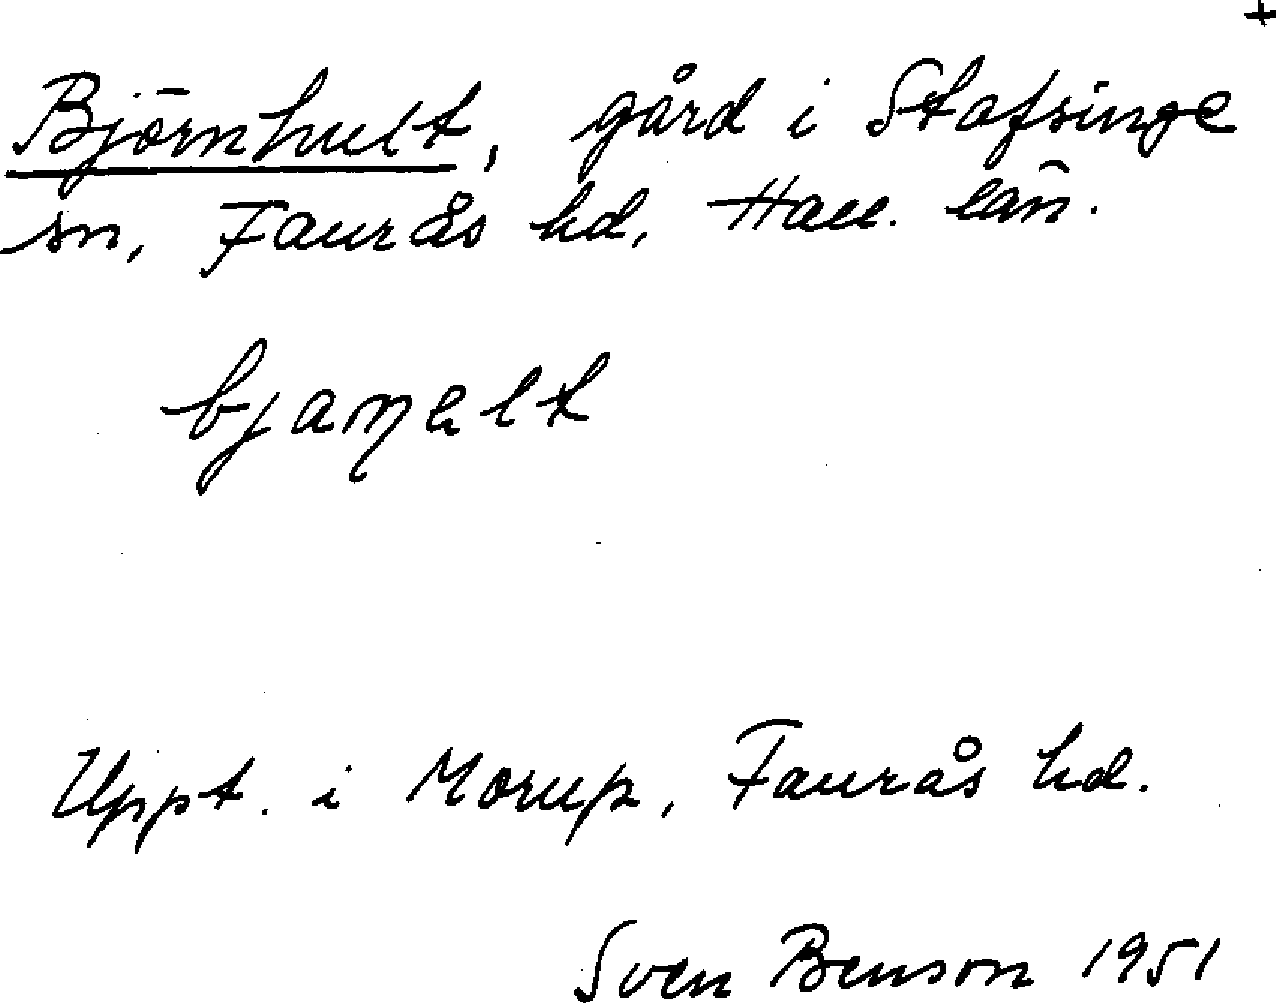 +
Björnhult, gård i Stafsinge
sn, Faurås hd, Hall. län.
bjaŋalt
Uppt. i Morup, Faurås hd.
Sven Benson 1951